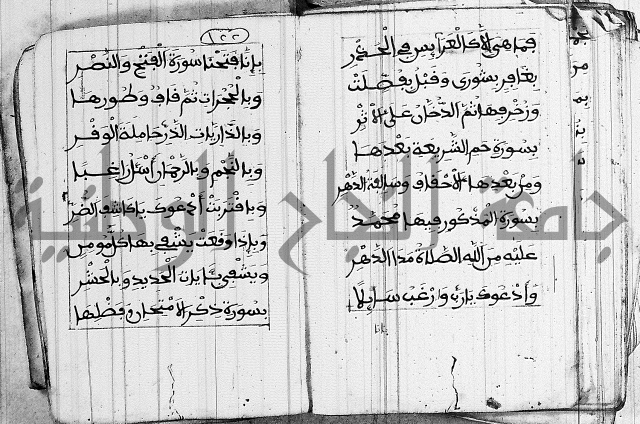 فما هي الا كالعرايس في الخمر
بغافر بشورى وقبل بفصلت
وزخرفها ثم الدخان على الاثر
بسورة حم الشريعة بعدها
ومن بعدها الاحقاف وسالفة الدهر
بسورة المذكور فيها محمد
عليه من الله الصلاة مدا الدهر
وادعوك يا رب وارغب سايلا
بانا
بانا فتحنا سورة الفتح والنصر
وبالحجرات ثم قاف وطورها
وبالذاريات الذر حاملة الوقر
وبالنجم وبالرحمان اسئل راغبا
وباقتربت ادعوك يا كاشف الضر
وباذا وقعت يشفي بها كل مومن
ويشفي بايات الحديد وبالحشر
بسورة ذكر الامتحان وفضلها
جامعة النجاح الوطنية